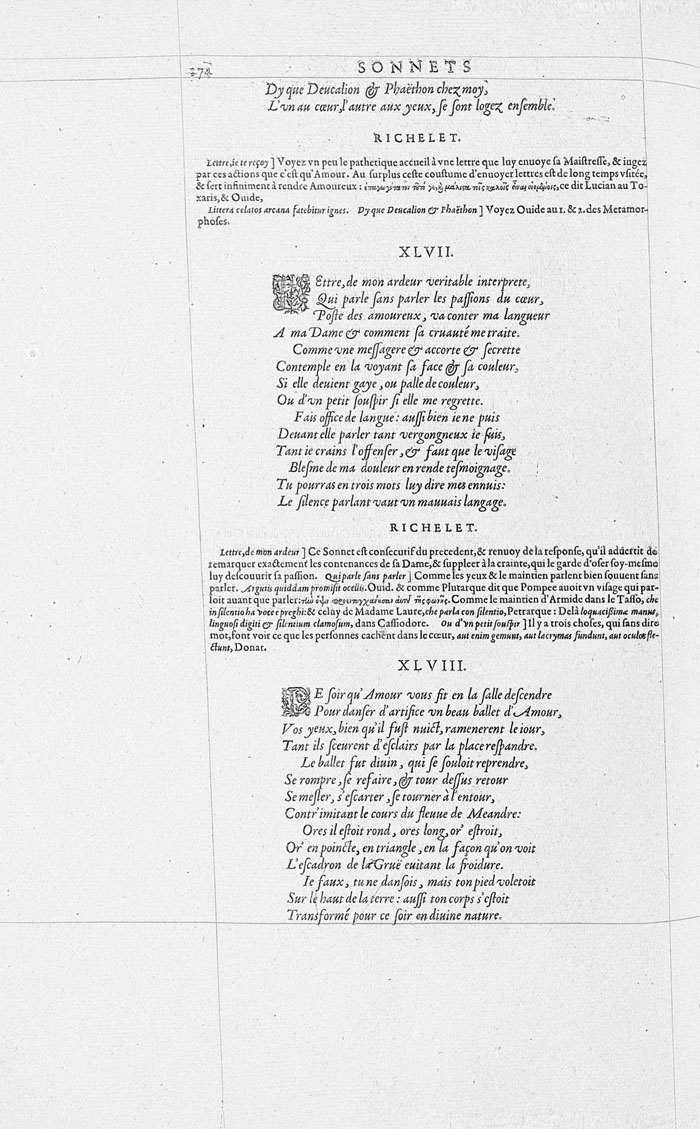 274 SONNETS
Dy que Deucalion & Phaëthon chez moy,
L'vn au cœur, l'autre aux yeux, se sont logez ensemble.
RICHELET.
Lettre, ie te reçoy ] Voyez vn peu le pathetique accueil à vne lettre que luy enuoye sa Maistresse, & iugez
par ces actions que c'est qu'Amour. Au surplus ceste coustume d'enuoyer lettres est de long temps vsitée,
& sert infiniment à rendre Amoureux : ce dit Lucian au To-
xaris, & Ouide,
Littera celatos arcana fatebitur ignes. Dy que Deucalion & Phaëthon ] Voyez Ouide au 1. & 2. des Metamor-
phoses.
XLVII.
LEttre, de mon ardeur veritable interprete,
Qui parle sans parler les passions du cœur,
Poste des amoureux, va conter ma langueur
A ma Dame & comment sa cruauté me traite.
Comme vne messagere & accorte & secrette
Contemple en la voyant sa face & sa couleur,
Si elle deuient gaye, ou palle de couleur,
Ou d'vn petit souspir si elle me regrette.
Fais office de langue: aussi bien ie ne puis
Deuant elle parler tant vergongneux ie suis,
Tant ie crains l'offenser, & faut que le visage
Blesme de ma douleur en rende tesmoignage.
Tu pourras en trois mots luy dire mes ennuis:
Le silence parlant vaut vn mauuais langage.
RICHELET.
Lettre, de mon ardeur ] Ce Sonnet est consecutif du precedent, & renuoy de la response, qu'il aduertit de
remarquer exactement les contenances de sa Dame, & suppleer à la crainte, qui le garde d'oser soy-mesme
luy descouurir sa passion. Qui parle sans parler ] Comme les yeux & le maintien parlent bien souuent sans
parler. Argutis quiddam promisit ocellis. Ouid. & comme Plutarque dit que Pompee auoit vn visage qui par-
loit auant que parler: Comme le maintien d'Armide dans le Tasso, che
in silentio ha voce e preghi: & celuy de Madame Laure, che parla con silentio, Petrarque : Delà loquacissimæ manus,
linguosi digiti & silentium clamosum, dans Cassiodore. Ou d'vn petit souspir ] Il y a trois choses, qui sans dire
mot, font voir ce que les personnes cachent dans le cœur, aut enim gemunt, aut lacrymas fundunt, aut oculos fle-
ctunt, Donat.
XLVIII.
LE soir qu'Amour vous fit en la salle descendre
Pour danser d'artifice vn beau ballet d'Amour,
Vos yeux, bien qu'il fust nuict, ramenerent le iour,
Tant ils sceurent d'esclairs par la place respandre.
Le ballet fut diuin, qui se souloit reprendre,
Se rompre, se refaire, & tour dessus retour
Se mesler, s'escarter, se tourner à l'entour,
Contr'imitant le cours du fleuue de Meandre:
Ores il estoit rond, ores long, or' estroit,
Or' en poincte, en triangle, en la façon qu'on voit
L'escadron de la Gruë euitant la froidure.
Ie faux, tu ne dansois, mais ton pied voletoit
Sur le haut de la terre : aussi ton corps s'estoit
Transformé pour ce soir en diuine nature.